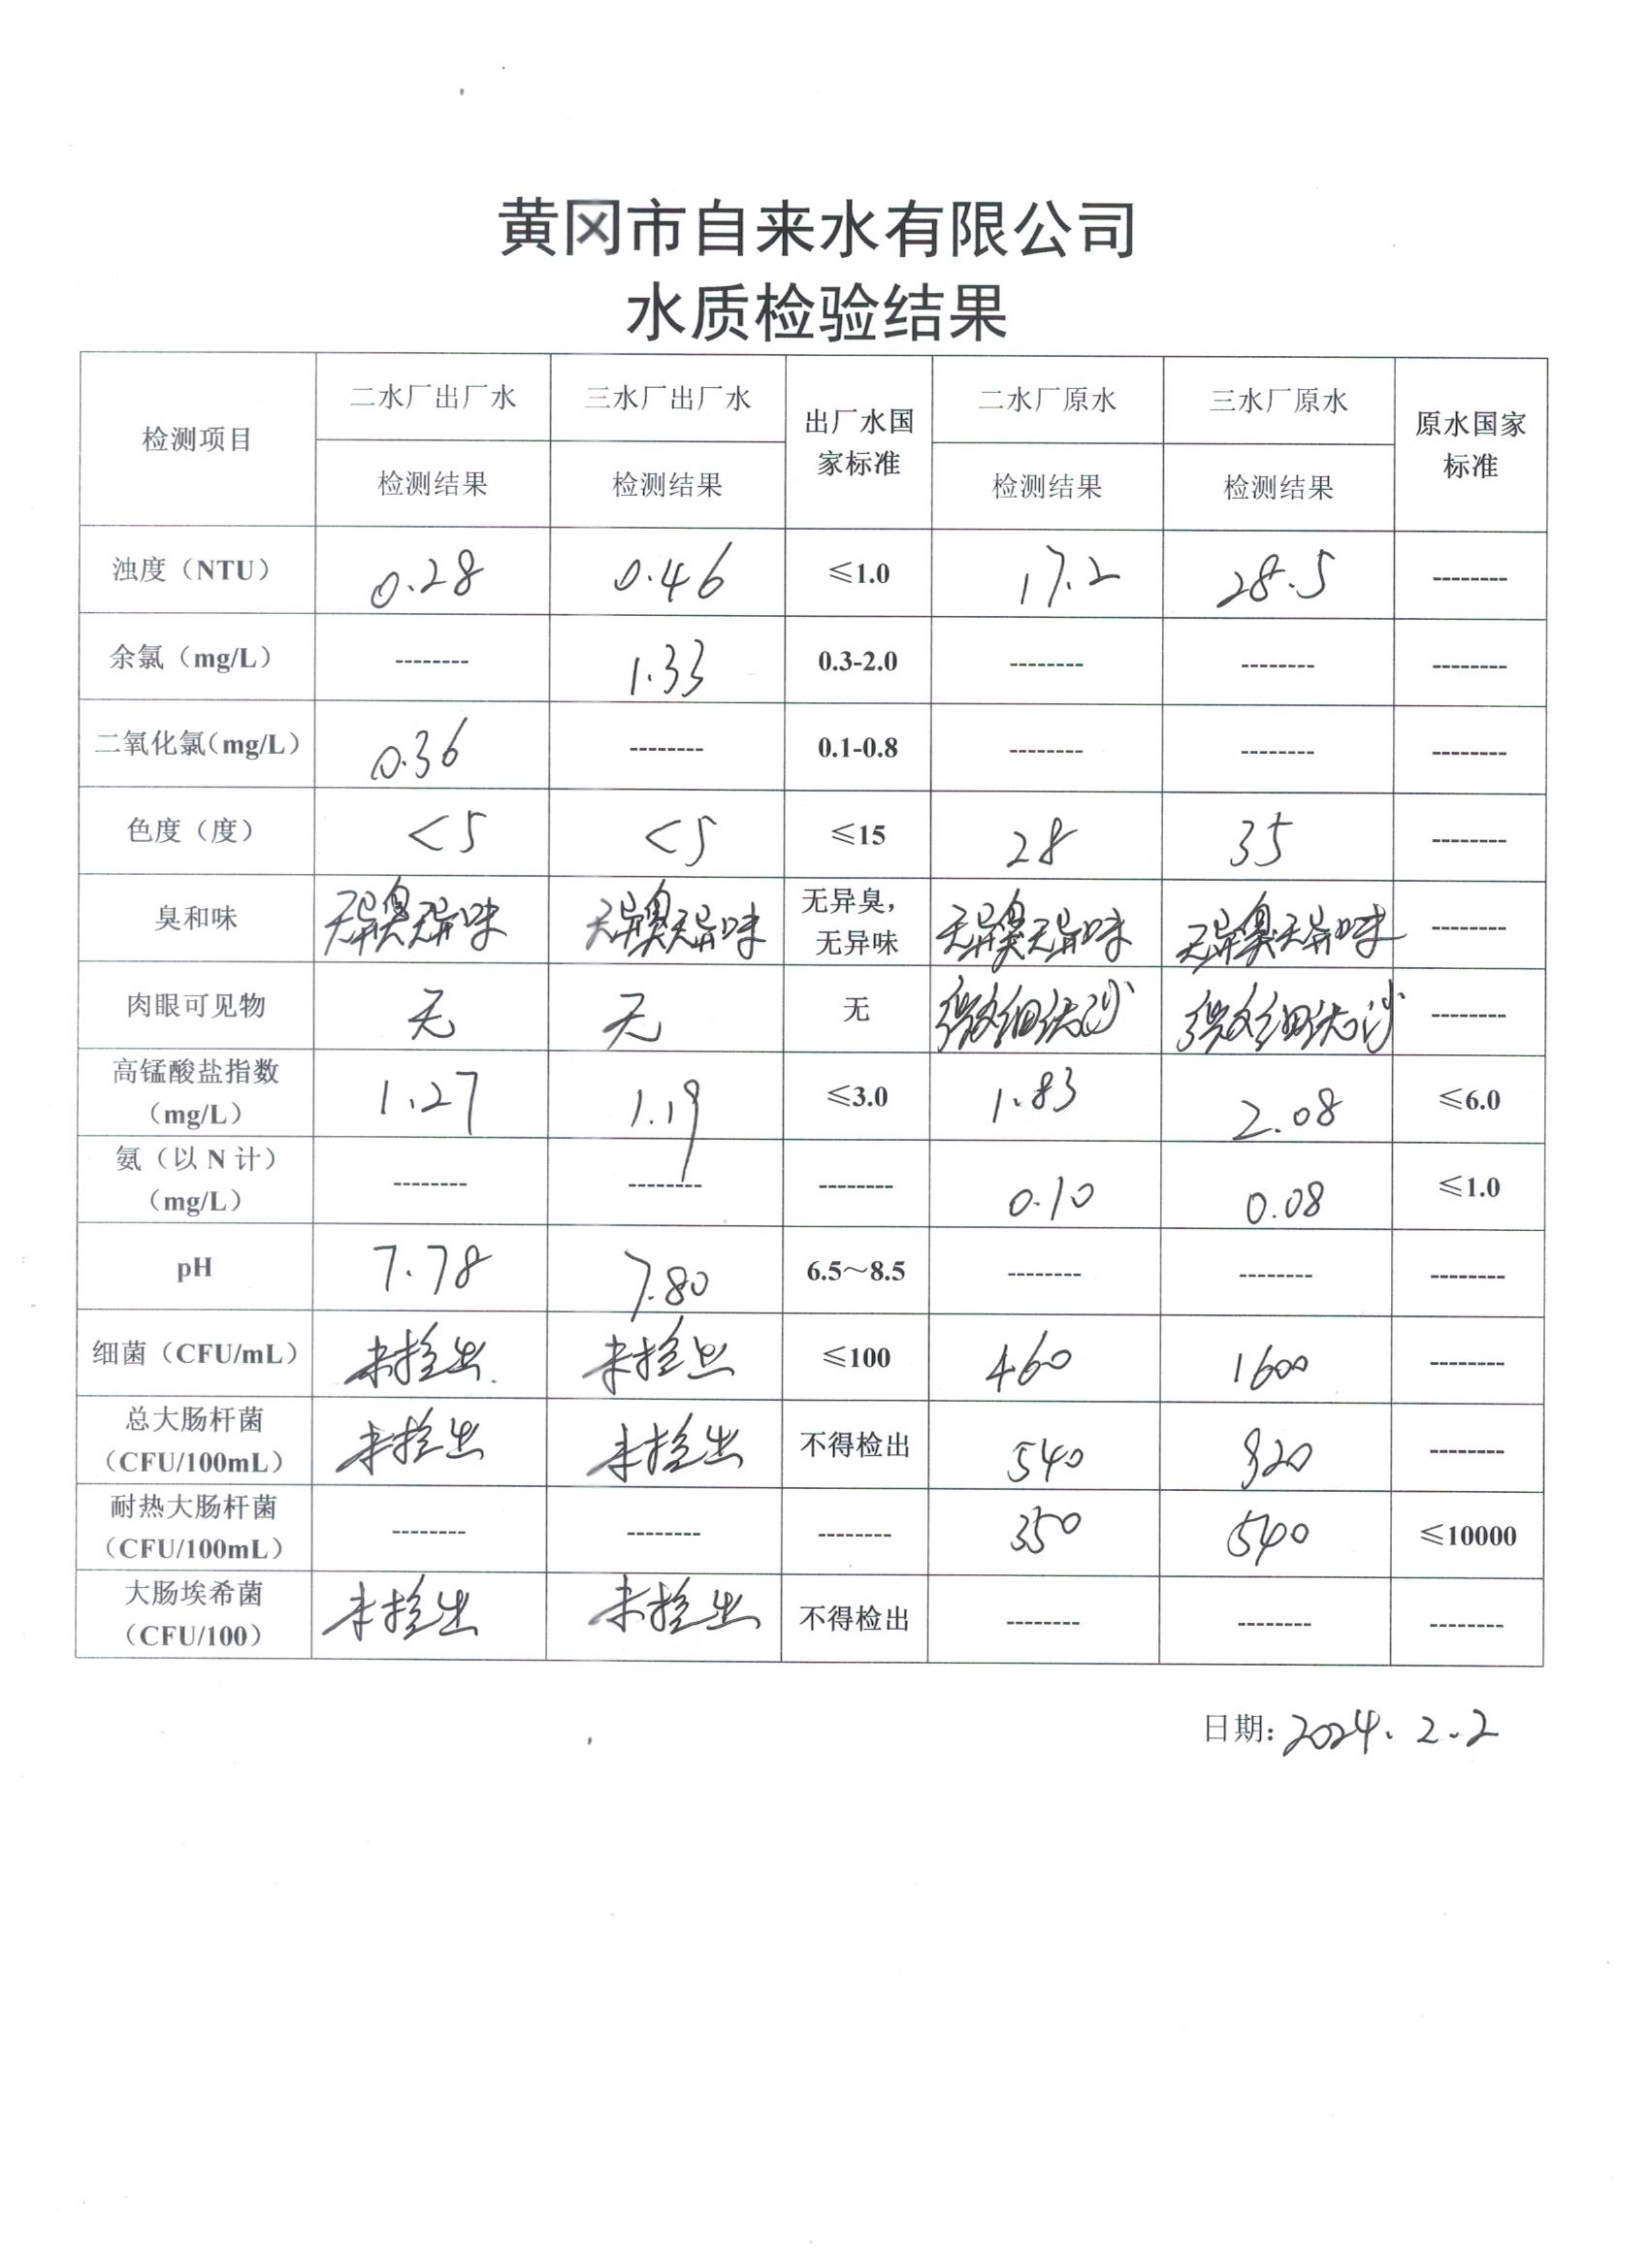 黄冈市自来水有限公司
水质检验结果
检测项目 二水厂出厂水 三水厂出厂水 出厂水国家标准 二水厂原水 三水厂原水 原水国家标准
检测结果 检测结果 检测结果 检测结果
浊度（NTU） 0.28 0.46 ≤1.0 17.2 28.5 --------
余氯（mg/L） -------- 1.33 0.3-2.0 -------- -------- --------
二氧化氯（mg/L） 0.36 -------- 0.1-0.8 -------- -------- --------
色度（度） <5 <5 ≤15 28 35 --------
臭和味 无异臭无异味 无异臭无异味 无异臭，无异味 无异臭无异味 无异臭无异味 --------
肉眼可见物 无 无 无 微细沙 微细沙 --------
高锰酸盐指数（mg/L） 1.27 1.19 ≤3.0 1.83 2.08 ≤6.0
氨（以 N 计）（mg/L） -------- -------- -------- 0.10 0.08 ≤1.0
pH 7.78 7.80 6.5～8.5 -------- -------- --------
细菌（CFU/mL） 未检出 未检出 ≤100 460 1600 --------
总大肠杆菌（CFU/100mL） 未检出 未检出 不得检出 540 920 --------
耐热大肠杆菌（CFU/100mL） -------- -------- -------- 350 540 ≤10000
大肠埃希菌（CFU/100） 未检出 未检出 不得检出 -------- -------- --------
日期：2024.2.2